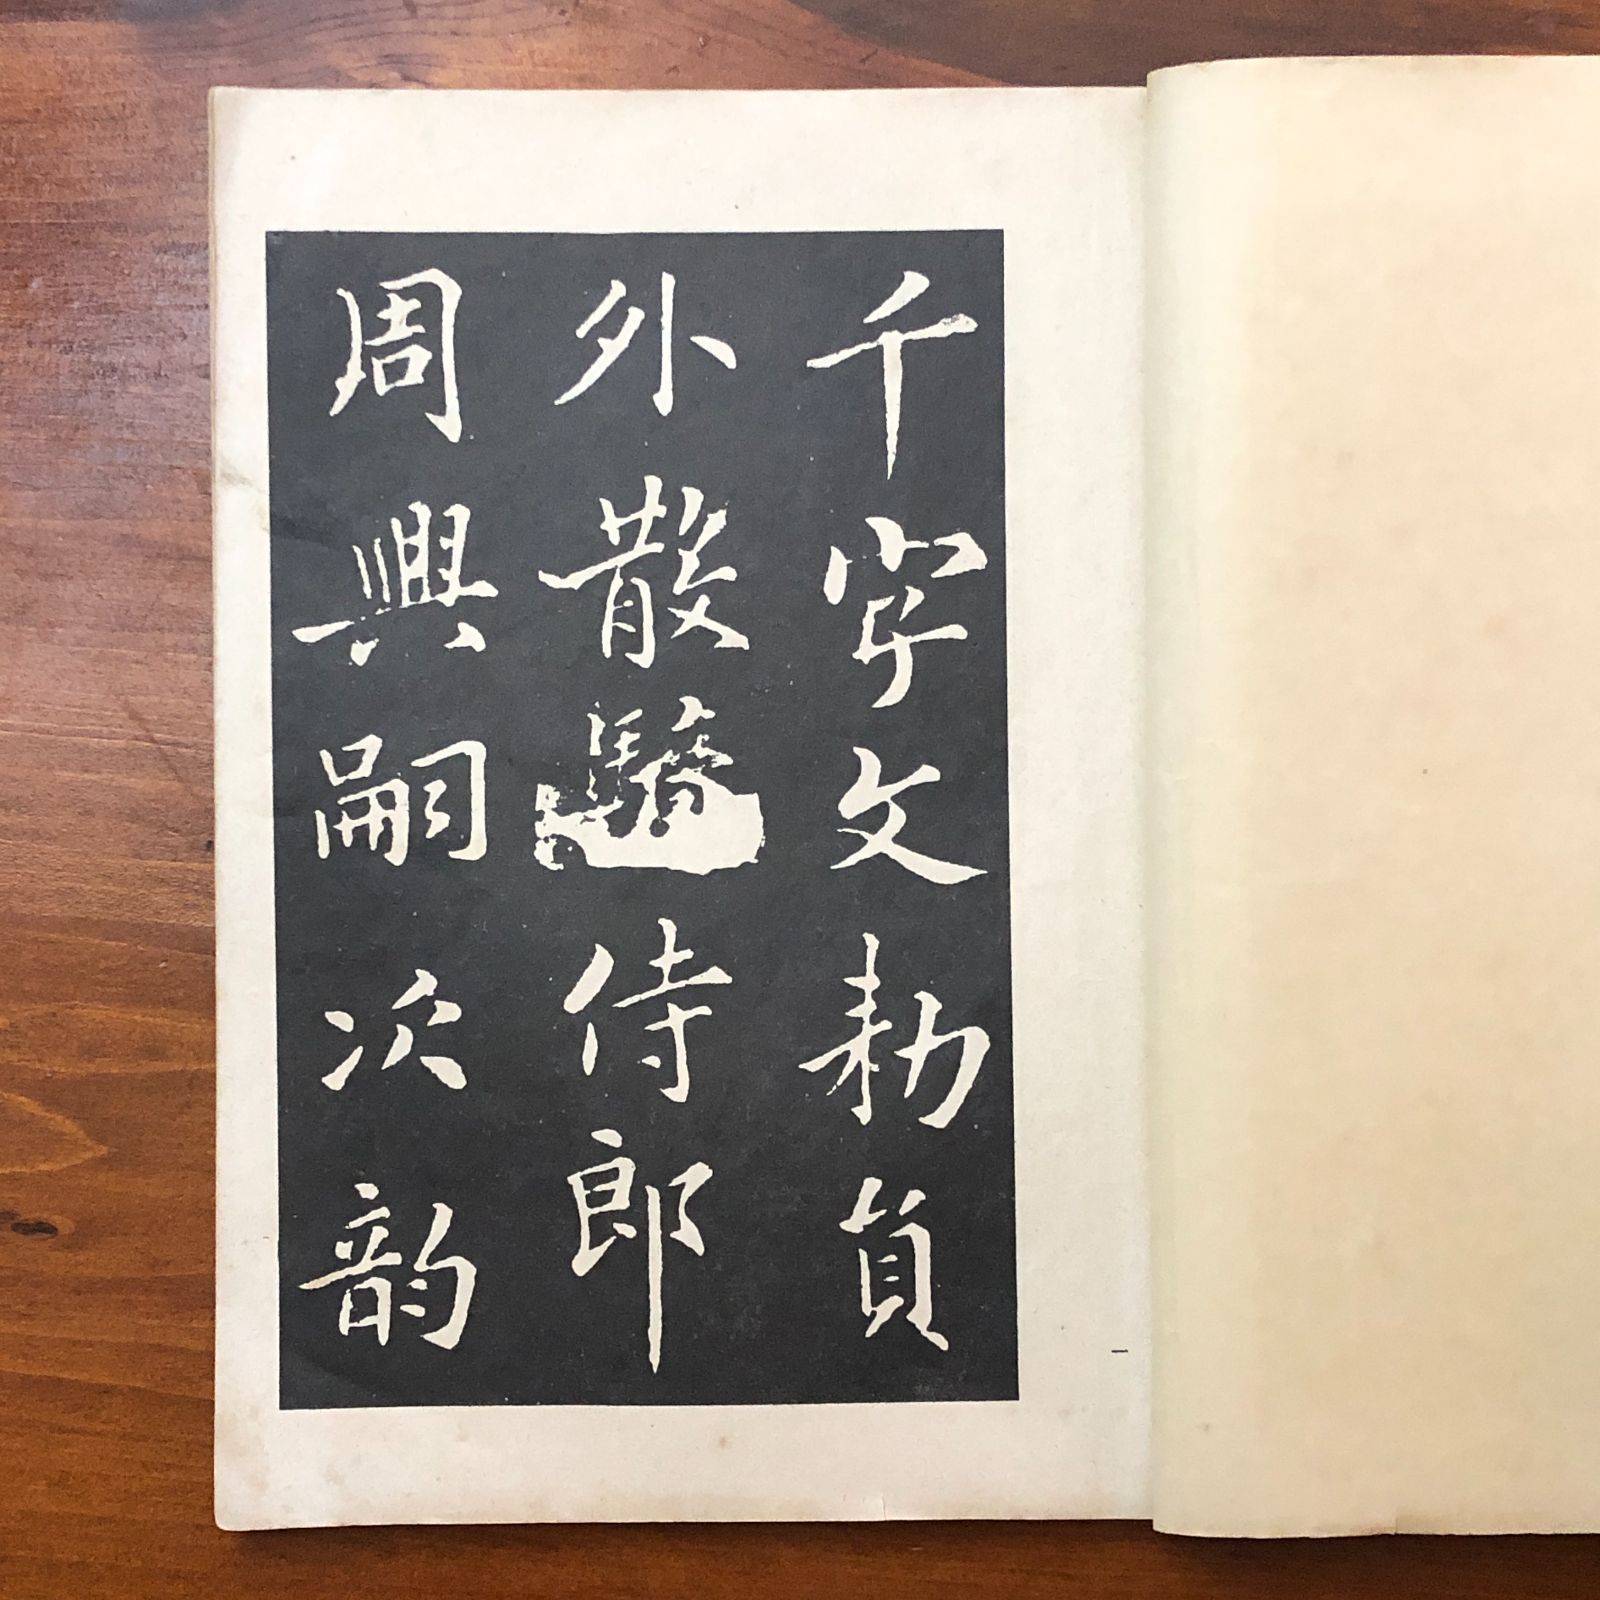 千字文敕員
外散騎侍郎
周興嗣次韵
一